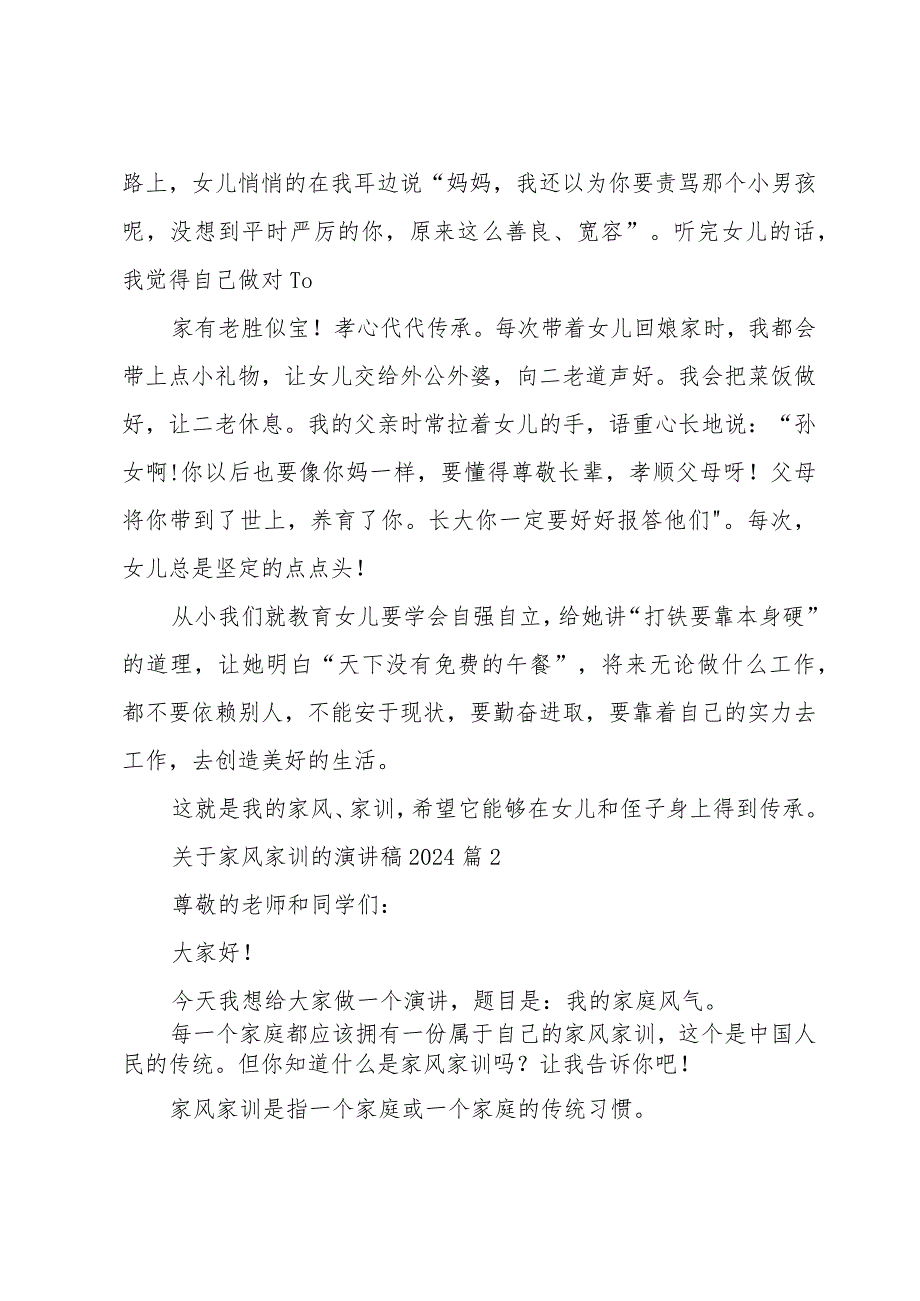 路上，女儿悄悄的在我耳边说“妈妈，我还以为你要责骂那个小男孩
呢，没想到平时严厉的你，原来这么善良、宽容”。听完女儿的话，
我觉得自己做对To
家有老胜似宝！孝心代代传承。每次带着女儿回娘家时，我都会
带上点小礼物，让女儿交给外公外婆，向二老道声好。我会把菜饭做
好，让二老休息。我的父亲时常拉着女儿的手，语重心长地说：“孙
女啊!你以后也要像你妈一样，要懂得尊敬长辈，孝顺父母呀！父母
将你带到了世上，养育了你。长大你一定要好好报答他们"。每次，
女儿总是坚定的点点头！
从小我们就教育女儿要学会自强自立，给她讲“打铁要靠本身硬”
的道理，让她明白“天下没有免费的午餐”，将来无论做什么工作，
都不要依赖别人，不能安于现状，要勤奋进取，要靠着自己的实力去
工作，去创造美好的生活。
这就是我的家风、家训，希望它能够在女儿和侄子身上得到传承。
关于家风家训的演讲稿2024篇2
尊敬的老师和同学们：
大家好！
今天我想给大家做一个演讲，题目是：我的家庭风气。
每一个家庭都应该拥有一份属于自己的家风家训，这个是中国人
民的传统。但你知道什么是家风家训吗？让我告诉你吧！
家风家训是指一个家庭或一个家庭的传统习惯。